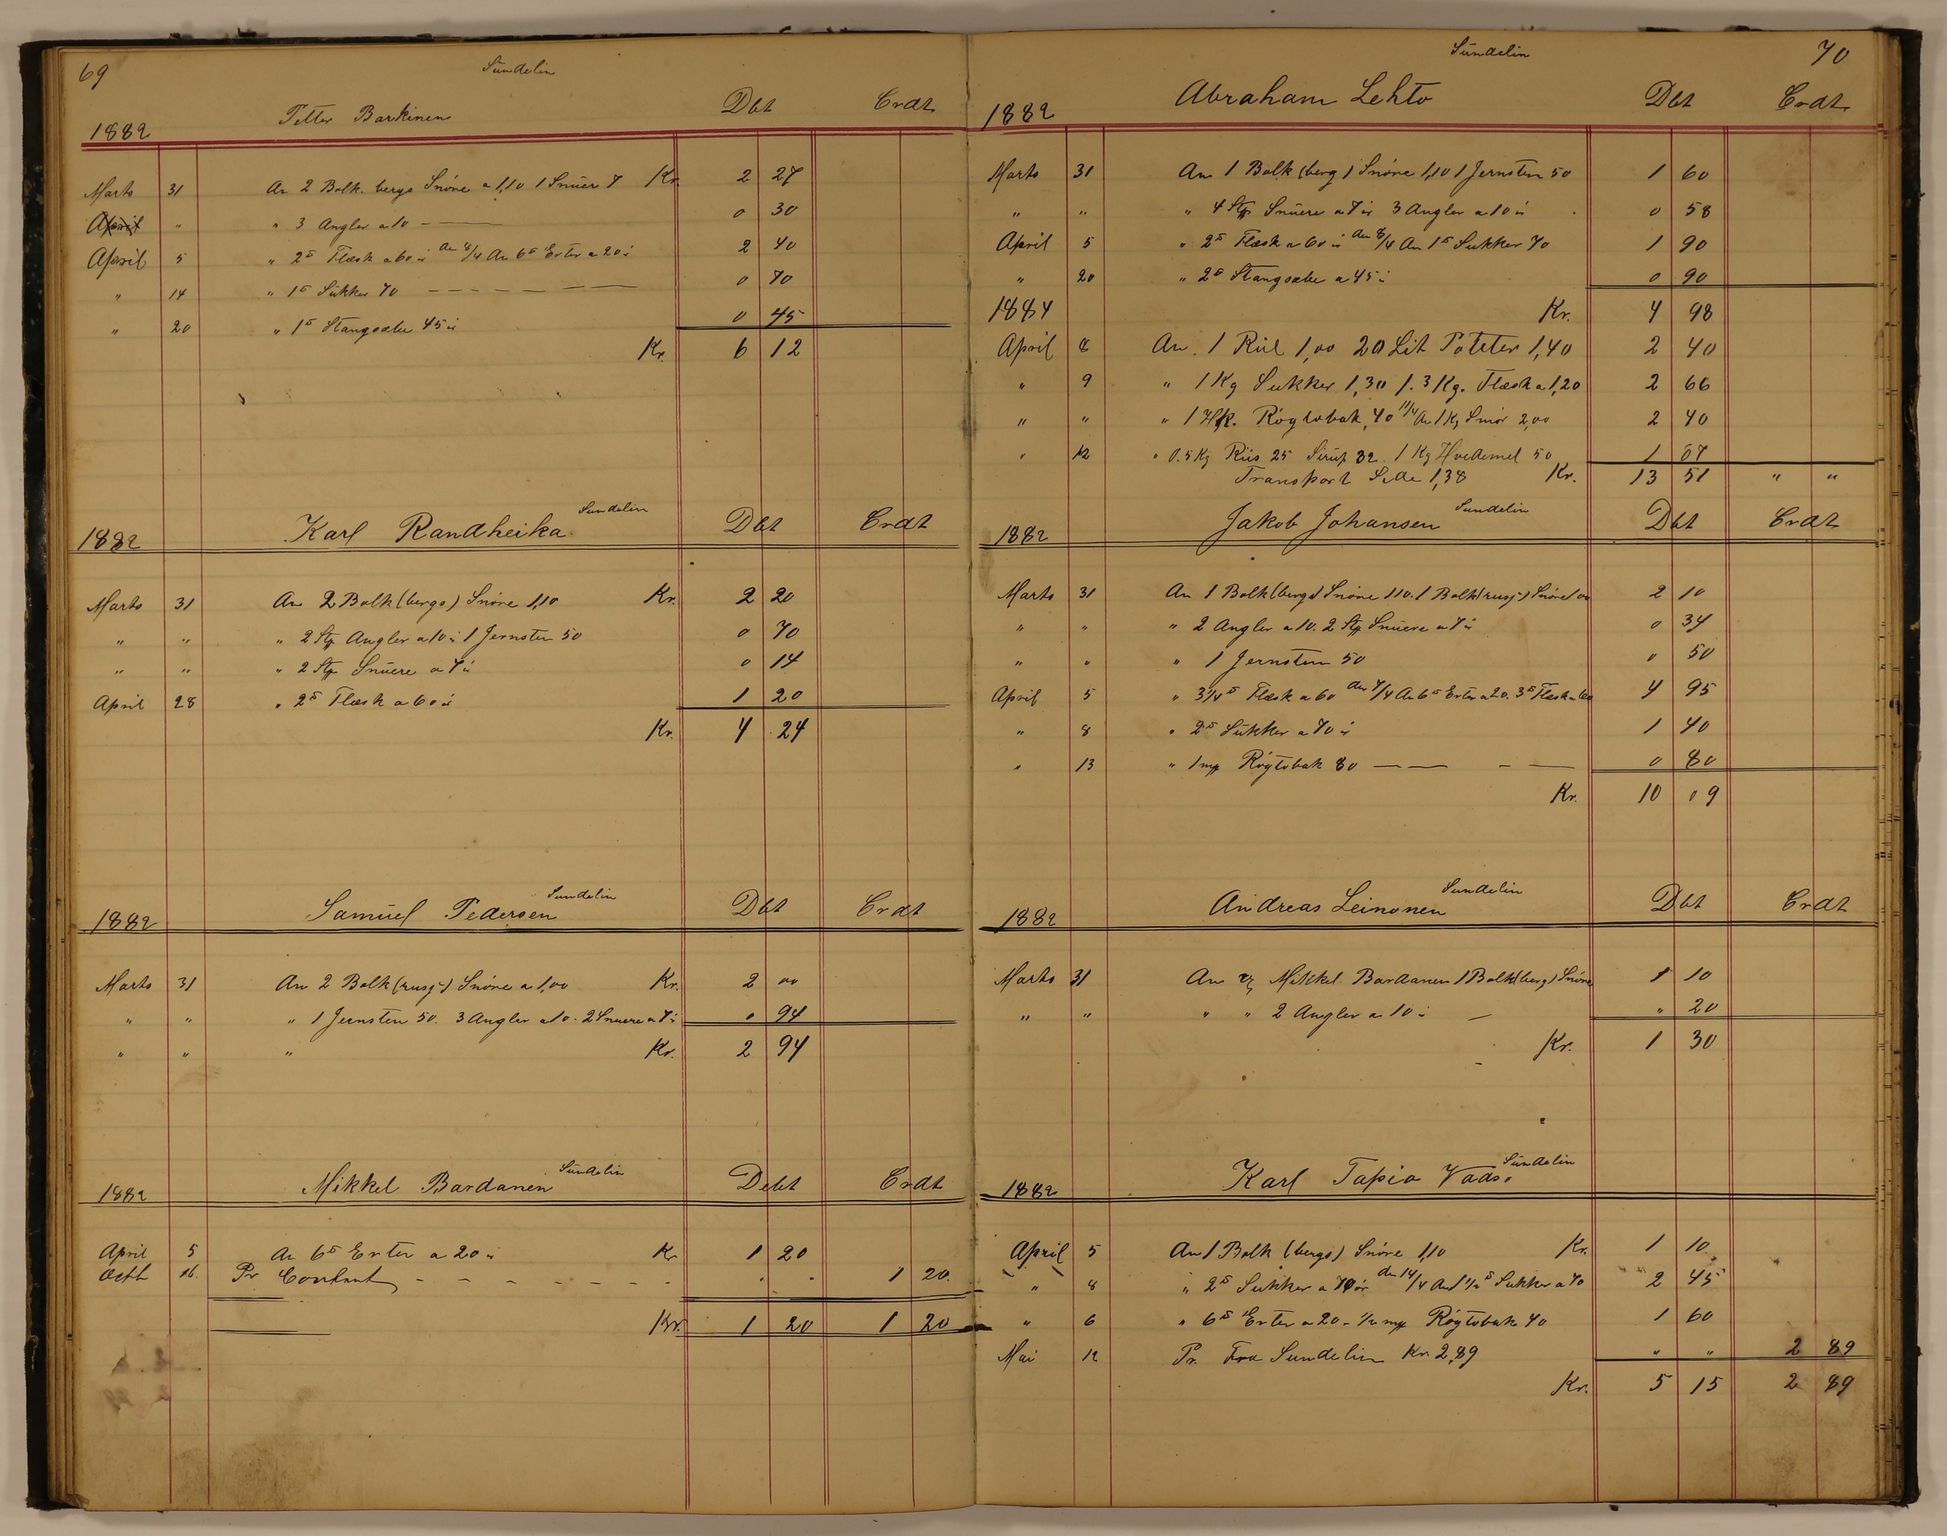 69
Sundelin
1882 Petter Barkinen Dbt Crdt
Marts 31 An 2 Bolk. bergs Snöre a 1,10 1 Snuer 7 Kr. 2 27
April " " 3 Angler a 10 — 0 30
April 5 " 2 ℔ Flæsk a 60 ör An 8/4 An 6 ℔ Erter a 20 ör 2 40
" 14 " 1 ℔ Sukker 70 — — — — — 0 70
" 20 " 1 ℔ Stangsæbe 45 ör 0 45
Kr. 6 12
Sundelin
1882 Karl Randheika Dbt Crdt
Marts 31 An 2 Bolk (bergs) Snöre 1,10 Kr. 2 20
" " " 2 Stp Angler a 10 ör 1 Jernsten 50 0 70
" " " 2 Stp Snuere a 7 ör 0 14
April 28 " 2 ℔ Flæsk a 60 ör 1 20
Kr. 4 24
Sundelin
1882 Samuel Pedersen Dbt Crdt
Marts 31 An 2 Bolk (rusj-) Snöre a 1,00 Kr. 2 00
" " " 1 Jernsten 50. 3 Angler a 10 - 2 Snuere a 7 ör 0 94
" " " Kr. 2 94
Sundelin
1882 Mikkel Bardanen Debt Crdt
April 5 An 6 ℔ Erter a 20 ör Kr 1 20
Octb 16. Pr Contant — — — — — — " " 1 20.
Kr. 1 20 1 20
Sundelin 70
1882 Abraham Lehto Dbt Crdt.
Marts 31 An 1 Bolk (berg) Snöre 1,10 1 Jernsten 50 1 60
" " " 4 Stp Snuere a 7 ör 3 Angler a 10 ör 0 58
April 5 " 2 ℔ Flæsk a 60 ör den 8/4 An 1 ℔ Sukker 70 1 90
" 20 " 2 ℔ Stangsæbe a 45 ör 0 90
1884 Kr. 4 98
April 8 An. 1 Riil 1,00 20 Lit Poteter 1,40 2 40
" 9 " 1 Kg Sukker 1,30 1.3 Kg. Flæsk a 1,20 2 66
" " " 1 Hk. Rögtobak ,40 11/4 An 1 Kg Smör 2,00 2 40
" 12 " 0.5 Kg Riis 25 Sirup 32. 1 Kg Hvedemel 50 1 07
Transport Side 1,38 Kr. 13 51 " "
Sundelin
1882 Jakob Johansen Dbt Crdt
Marts 31 An 1 Bolk (bergs) Snöre 1 10. 1 Bolk (rusj-) Snöre 1 00 2 10
" " " 2 Angler a 10. 2 Stp Snuere a 7 ör 0 34
" " " 1 Jernsten 50 0 50
April 5 " 3 1/4 ℔ Flæsk a 60 den 7/4 An 6 ℔ Erter a 20. 3 ℔ Flæsk a 60 4 95
" 8 " 2 ℔ Sukker a 70 ör 1 40
" 13 " 1 mp Rögtobak 80 — — — — 0 80
Kr. 10 09
Sundelin
1882 Andreas Leinonen Dbt Crdt
Marts 31 An v/ Mikkel Bardanen 1 Bolk (berg) Snöre 1 10
" " " " 2 Angler a 10 ör — " 20
Kr. 1 30
Sundelin
1882 Karl Tapio Vads.
April 5 An 1 Bolk (bergs) Snöre 1,10 Kr. 1 10
" 8 " 2 ℔ Sukker a 70 ör den 14/4 An 1 1/2 ℔ Sukker a 70 2 45
" 6 " 6 ℔ Erter a 20 - 1/2 mp Rögtobak 40 1 60
Mai 12 Pr. Fra Sundelin Kr 2,89 " " 2 89
Kr. 5 15 2 89